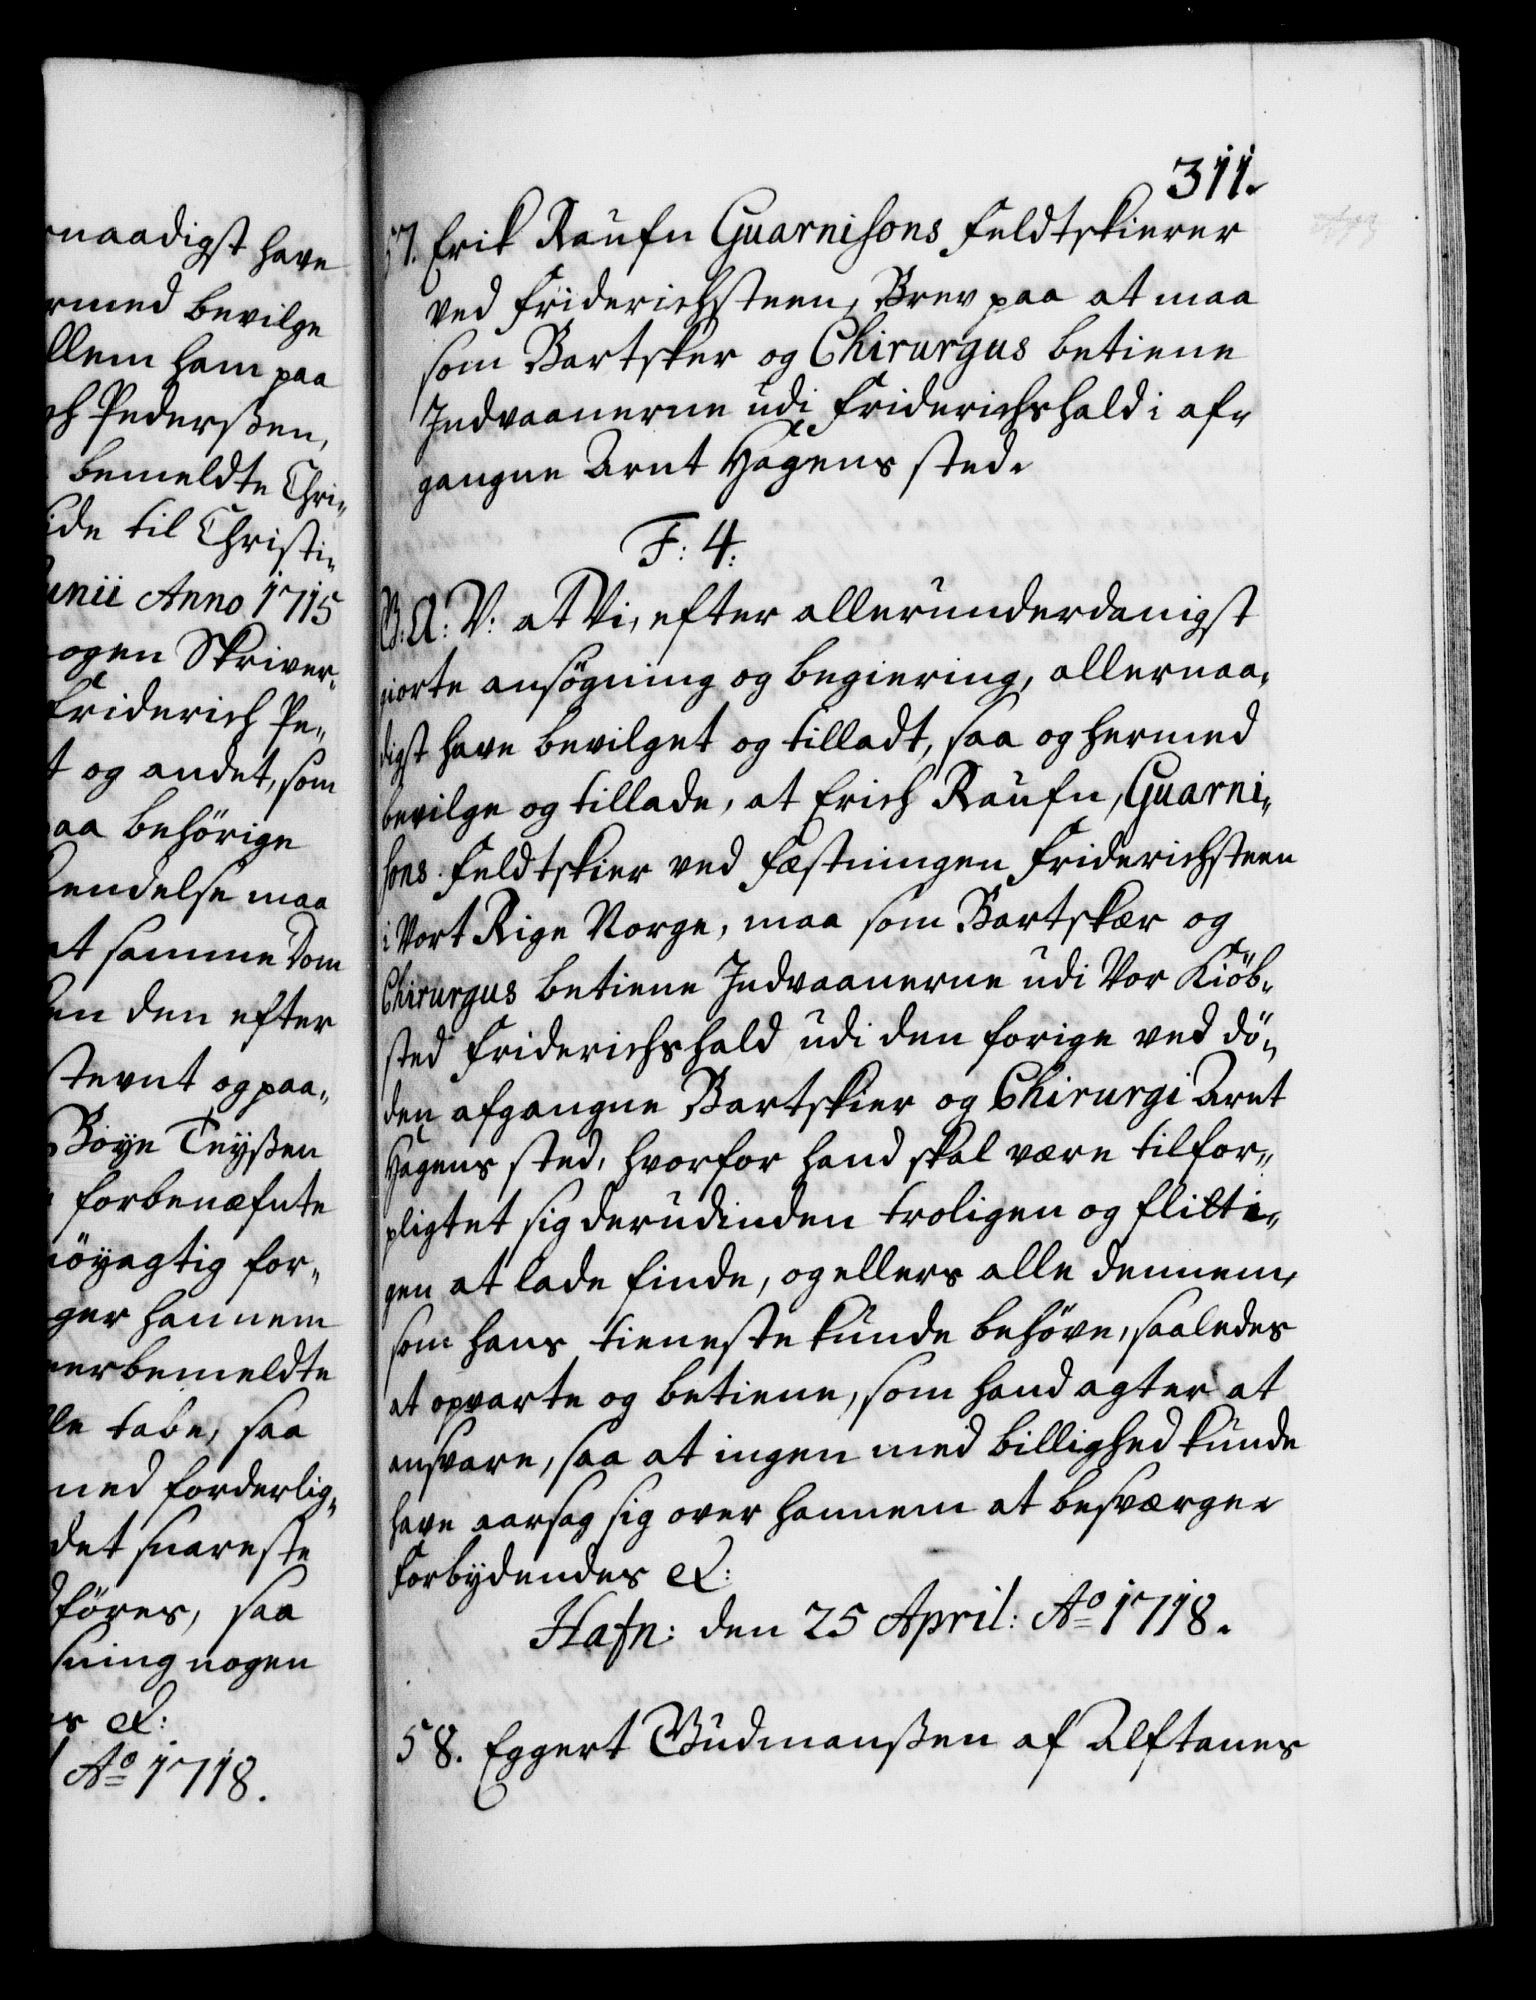 naadigst have
rmed bevilge
llem ham paa
ch Pederßen,
bemeldte Chri„
ide til Christi„
unii Anno 1715
ogen Skriver„
Friderich Pe„
t og andet, som
aa behörige
kendelse maa
at samme Dom
en den efter
stevnt og paa„
Boye Teyßen
forbenæfnte
nöyagtig for„
ger hannem
erbemeldte
le tabe, saa
med forderlig„
det snareste
föres, saa
ning nogen
es &:
Aº 1718.
311.
57. Erik Raufn Guarnisons Feldtskierer
ved Friderichsteen, Brev paa at maa
som Bartsker og Chirurgus betiene
Indvaanerne udi Friderichshald i af„
gangne Arnt Hagens sted.
F: 4:
G: A: V: at Vi, efter allerunderdanigst
giorte ansögning og begiering, allernaa„
digst have bevilget og tilladt, saa og hermed
bevilge og tillade, at Erich Raufn, Guarni„
sons Feldtskier ved Fæstningen Friderichsteen
i Vort Rige Norge, maa som Bartskær og
Chirurgus betiene Indvaanerne udi Vor Kiöb„
sted Friderichshald udi den forige ved dö„
den afgangne Bartskier og Chirurgi Arnt
Hagens sted, hvorfor hand skal være tilfor„
pligtet sig derudinden troligen og flitti„
gen at lade finde, og ellers alle dennem,
som hans tieneste kunde behöve, saaledes
at opvarte og betiene, som hand agter at
ansvare, saa at ingen med billighed kunde
have aarsag sig over hannem at besværge.
Forbydendes &:
Hafn: den 25 April: Aº 1718.
58. Eggert Gudmanßen af Alftanes